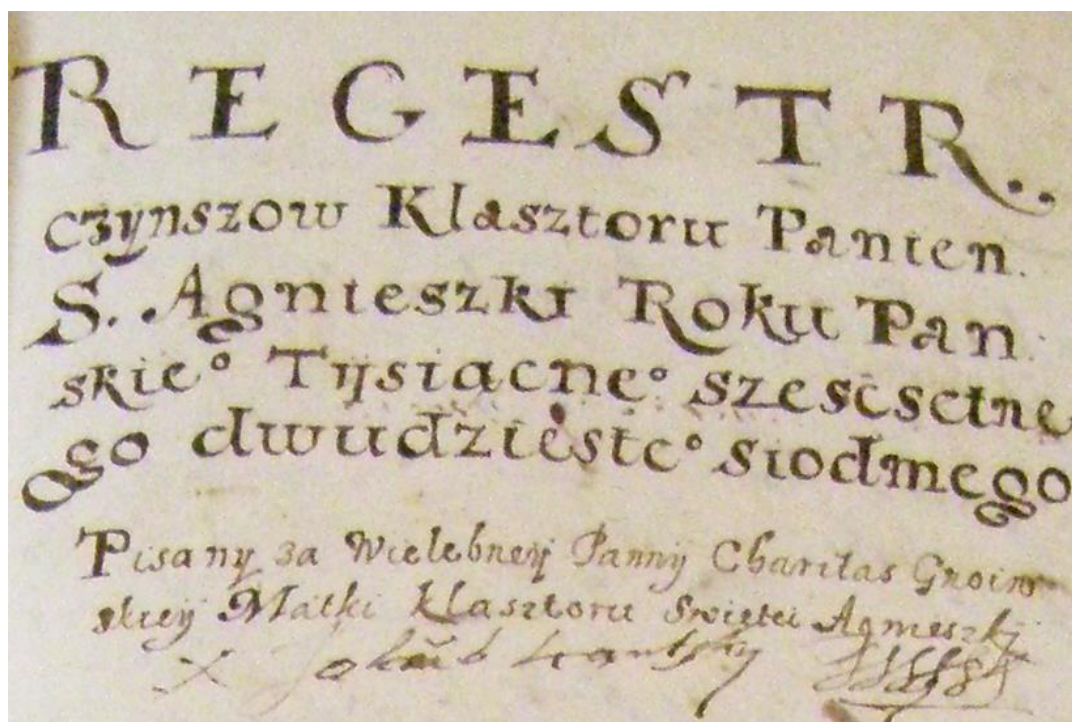 REGESTR..
czynszow Klasztoru Panien.
S. Agnieszki Roku Pan
skie° Tysiacne° szescsetne
go dwudzieste° siodmego
Pisany za Wielebney Panny Charitas Gnoiw
skiey Matki klasztoru swiętei Agnieszky
X Jakub